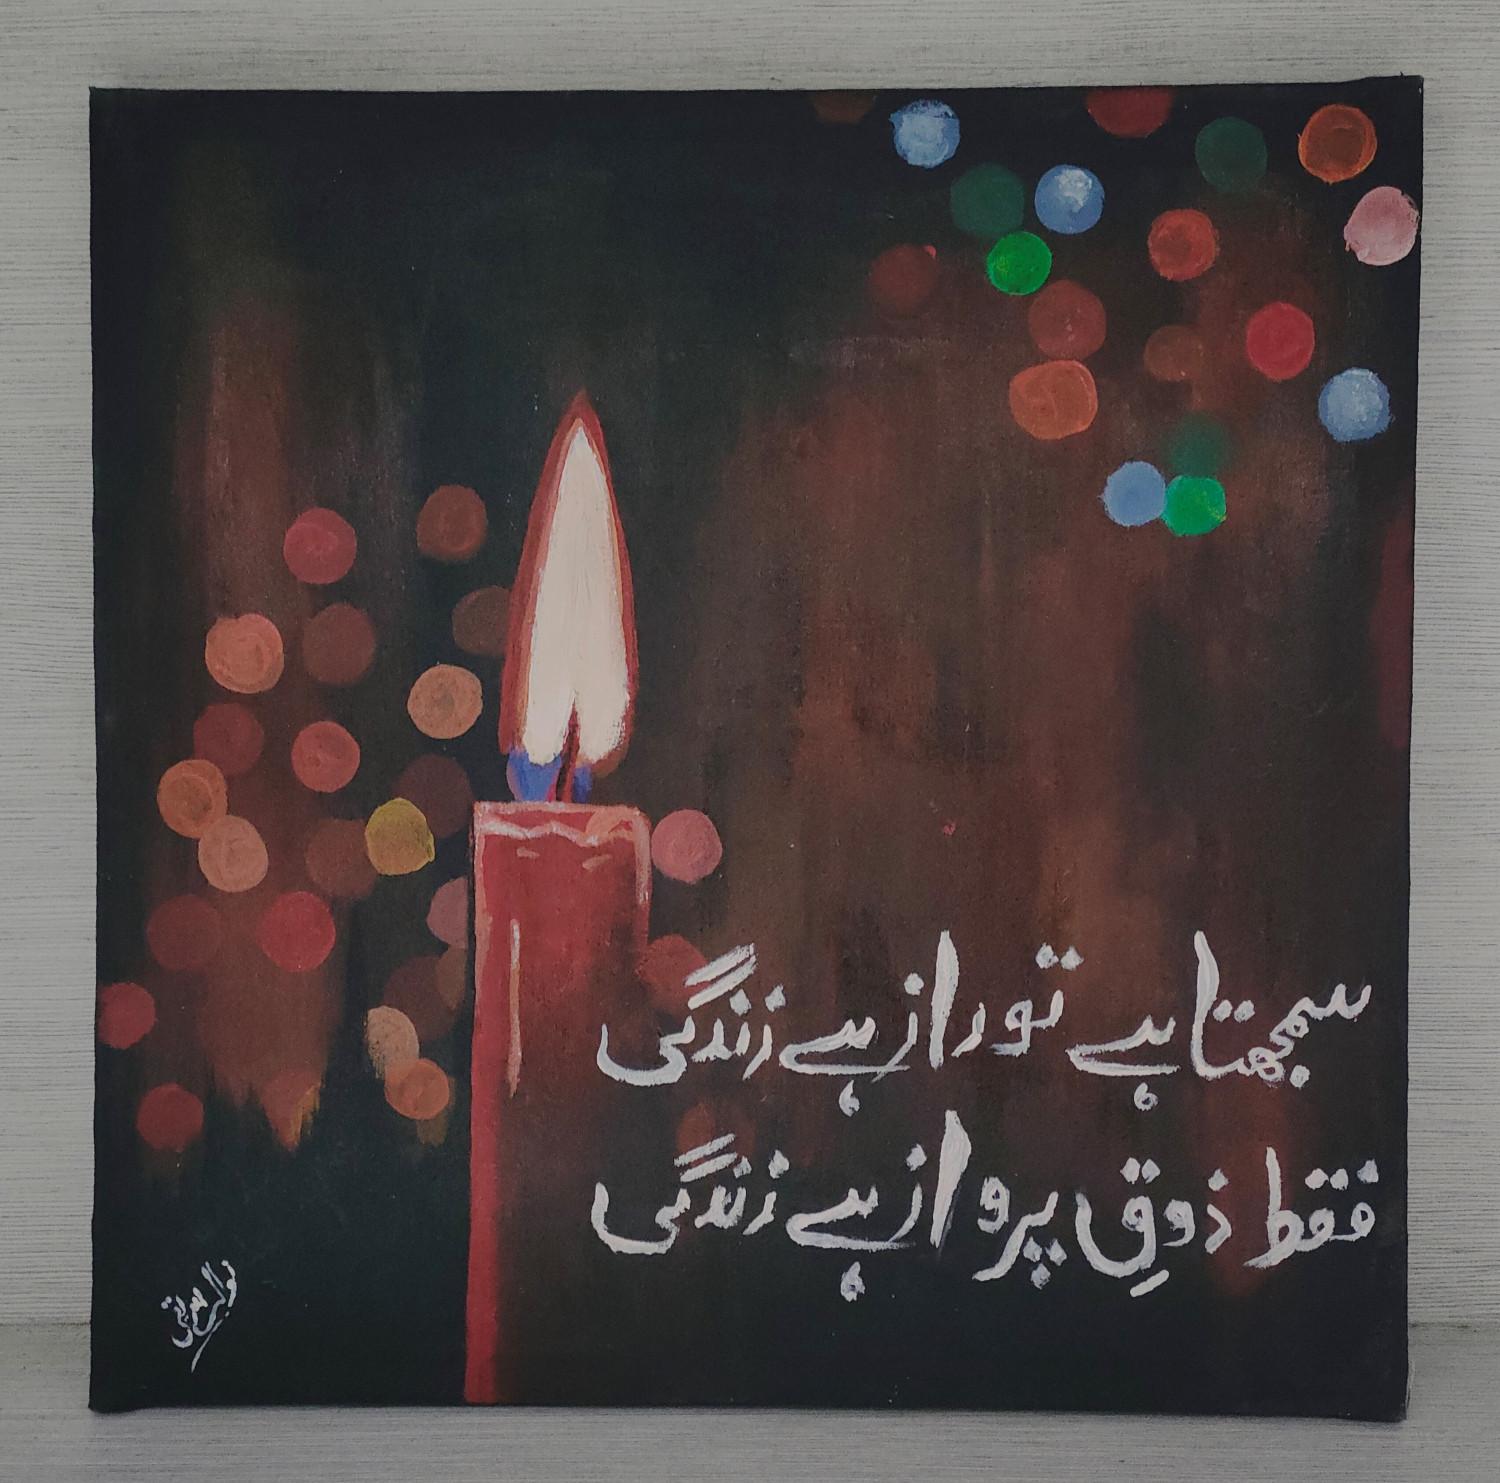 سمجھتا ہے تو راز ہے زندگی
فقط ذوقِ پرواز ہے زندگی